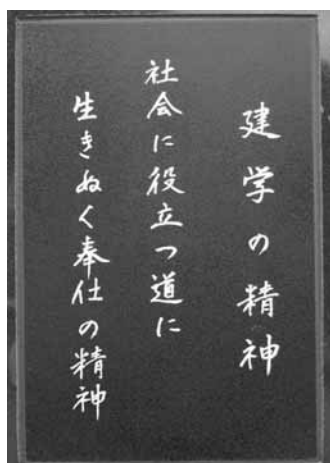 建学の精神
社会に役立つ道に
生きぬく奉仕の精神